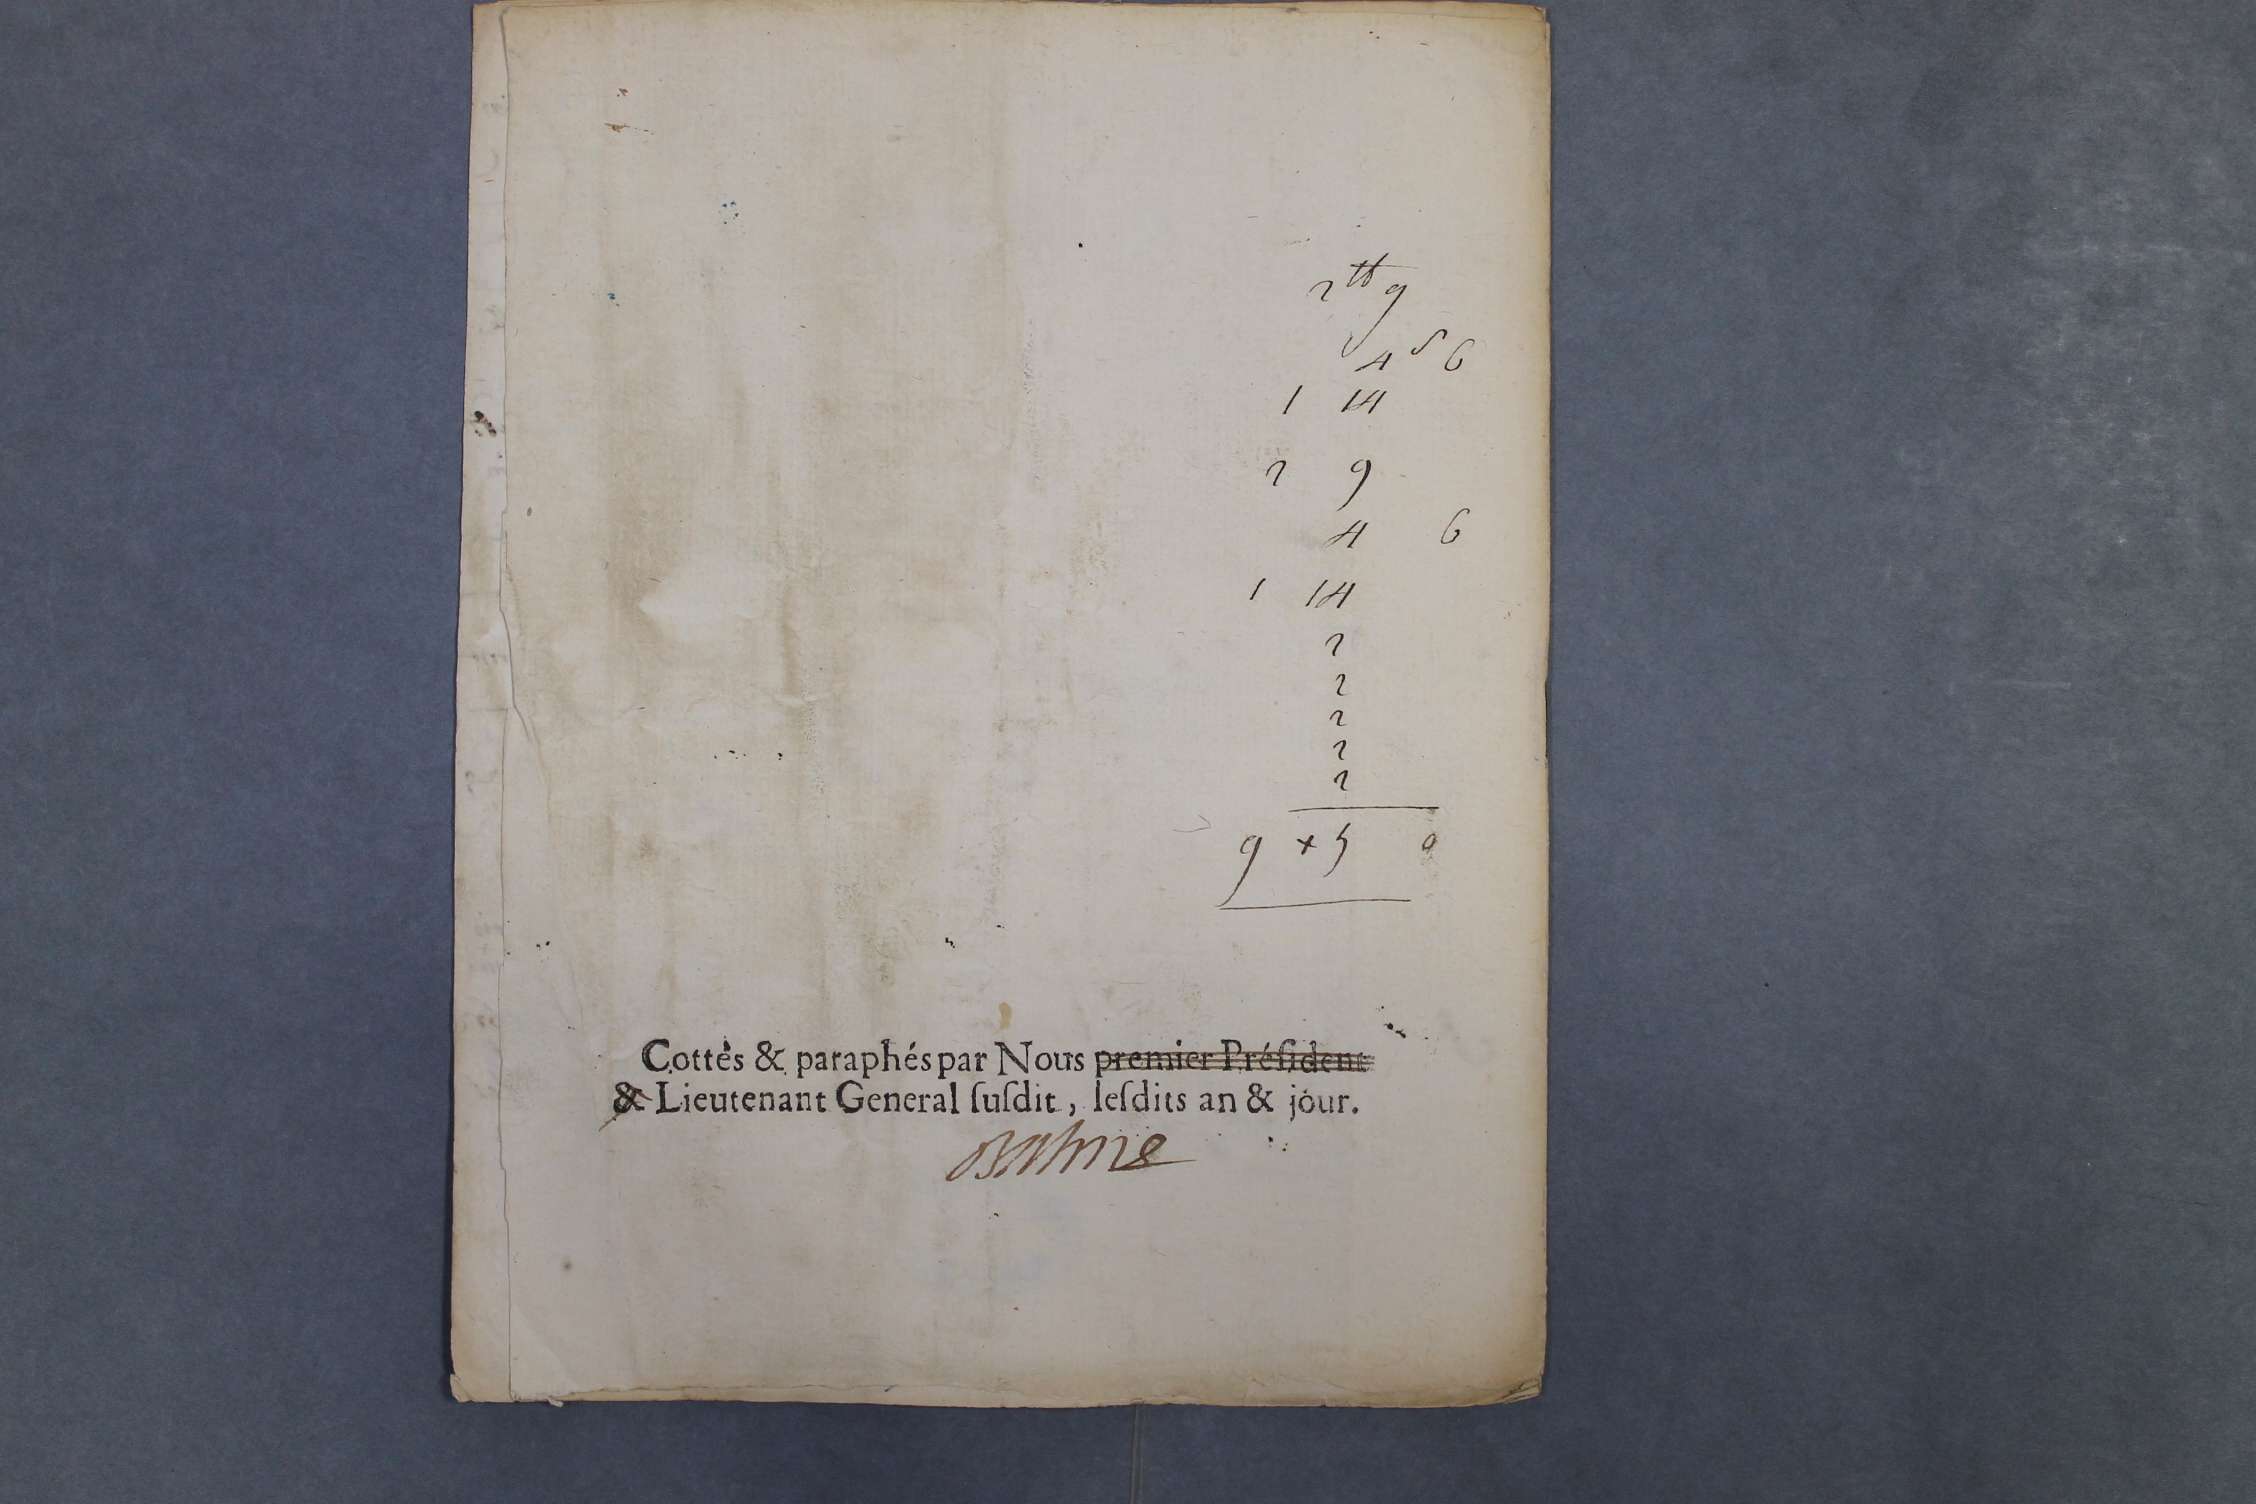 2 ₶ 9
4 s 6
1 14
2 9
4 6
1 14
2
2
2
2
2
9 x 5 0
Cottés & paraphés par Nous premier Préſident
& Lieutenant General ſuſdit, leſdits an & jour.